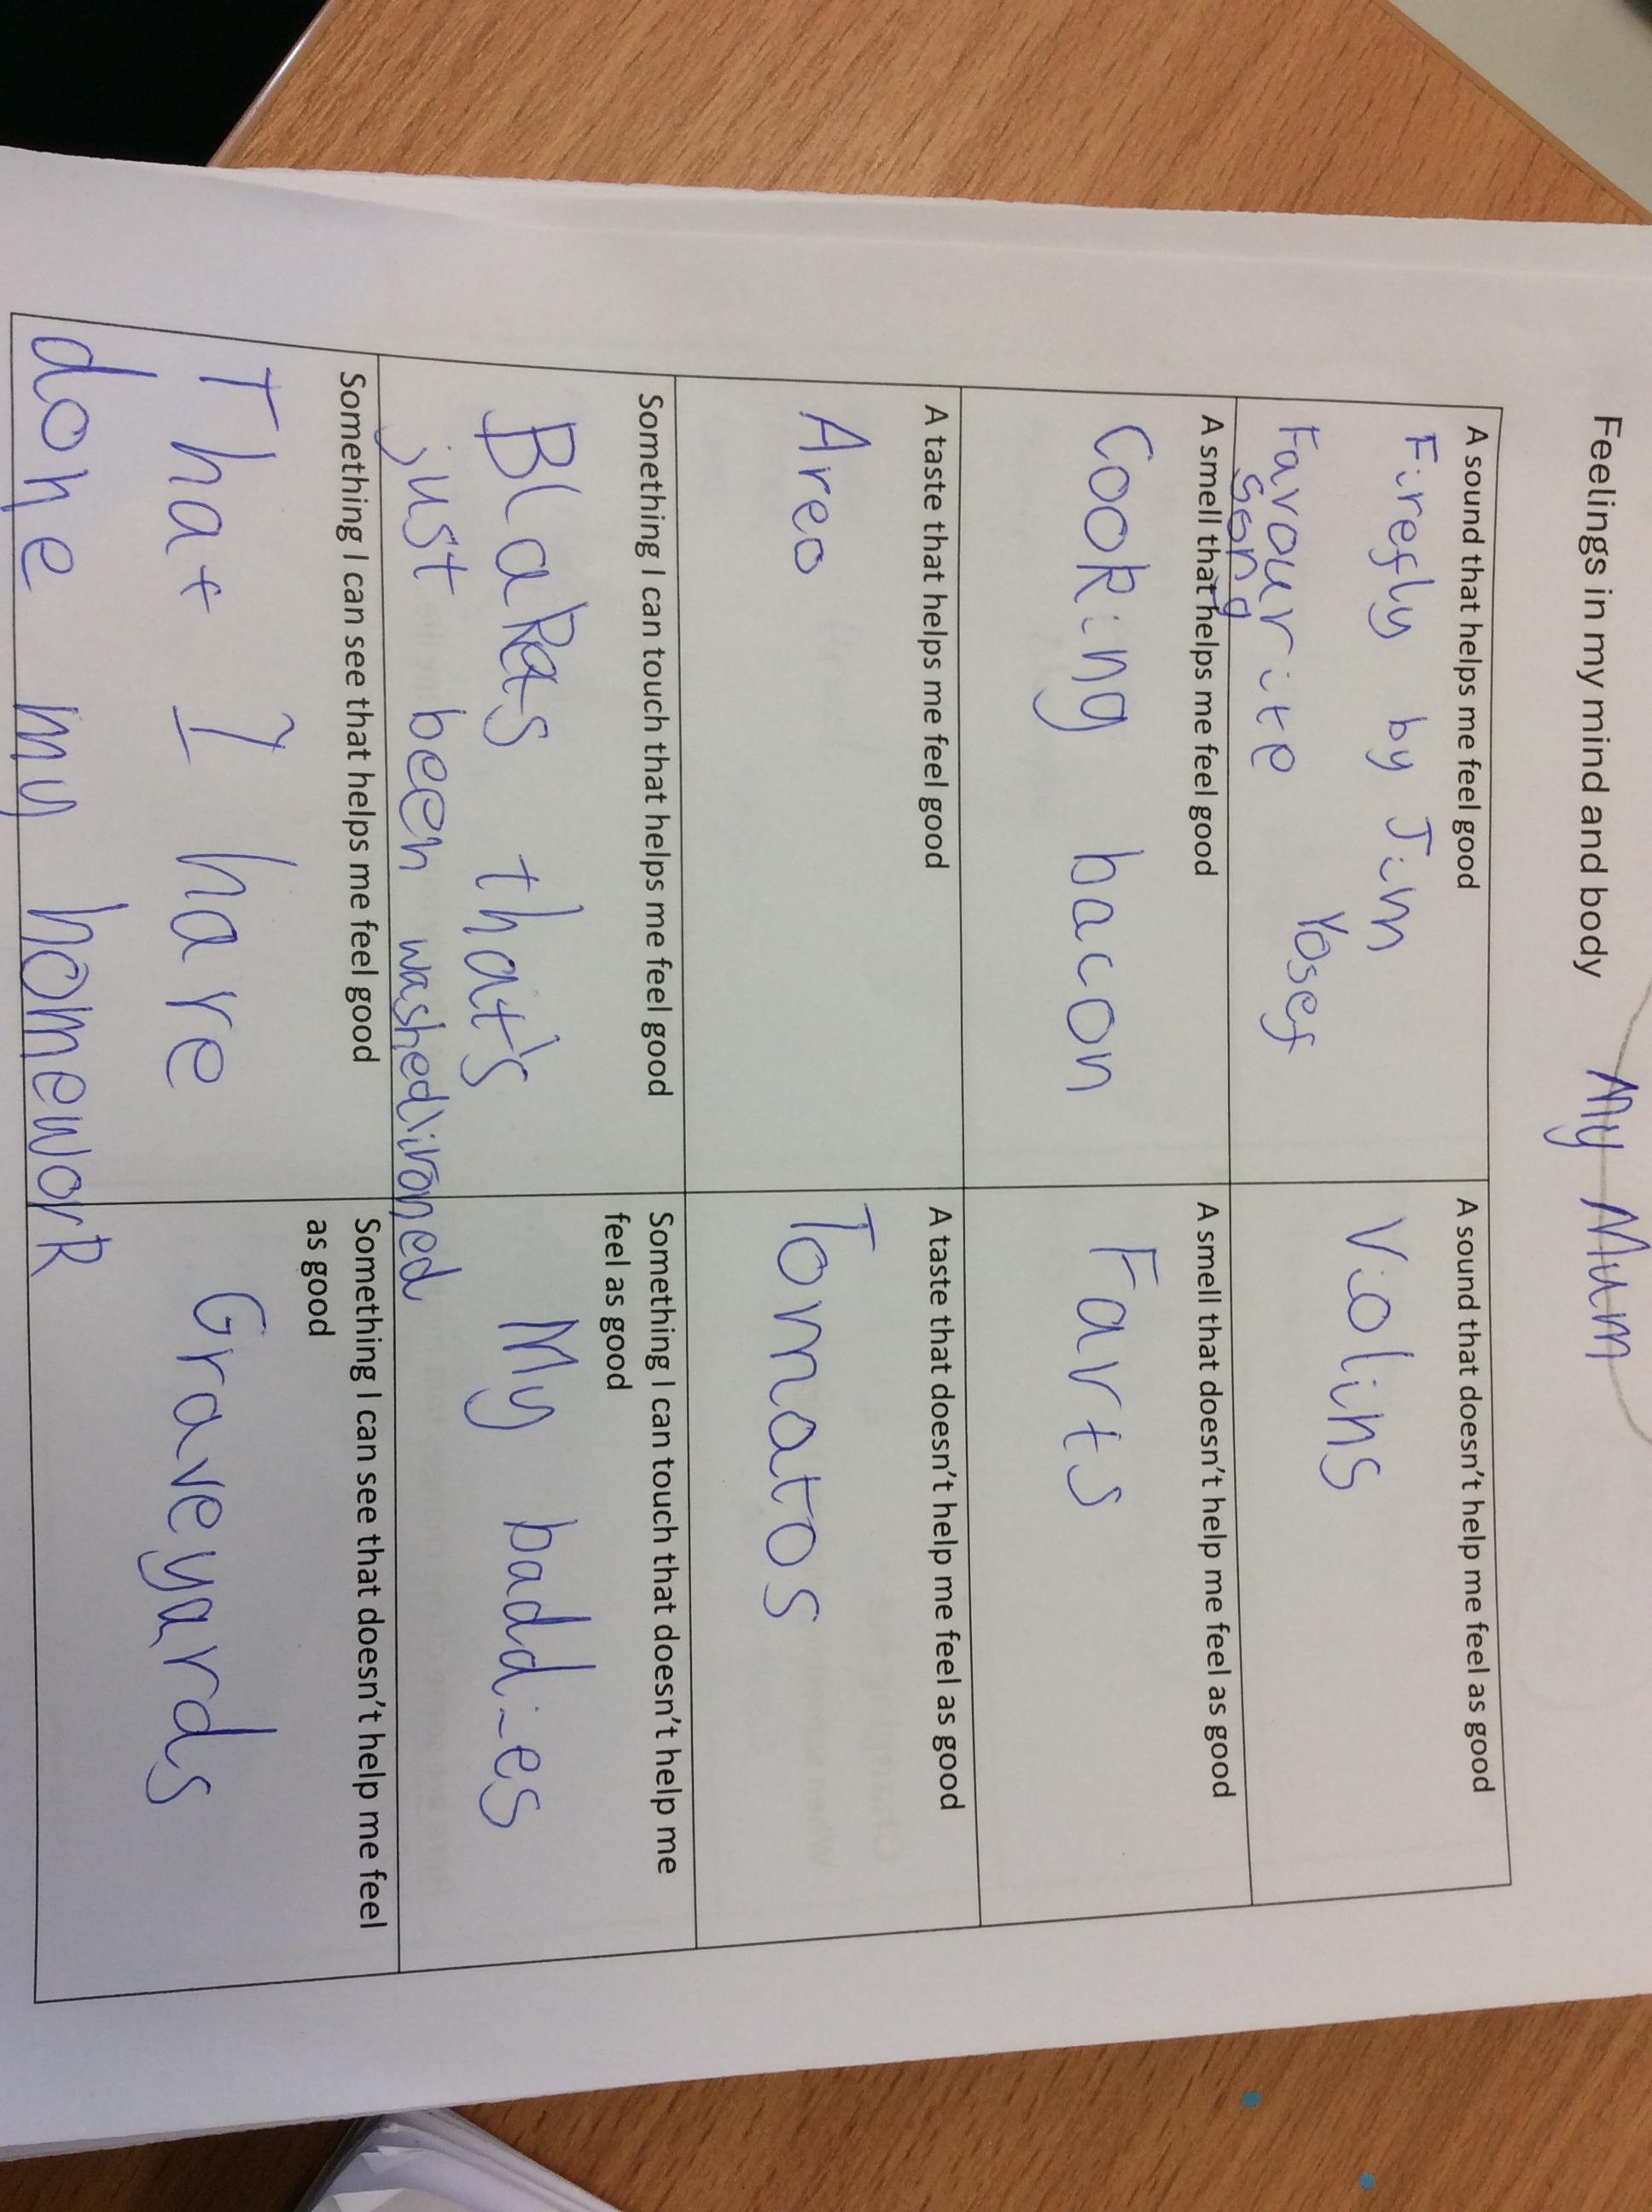 Feelings in my mind and body My Mum
A sound that helps me feel good
Firefly by Jim
Yosef
Favourite
song
A sound that doesn't help me feel as good
Violins
A smell that helps me feel good
Cooking bacon
A smell that doesn't help me feel as good
Farts
A taste that helps me feel good
Areo
A taste that doesn't help me feel as good
Tomatos
Something I can touch that helps me feel good
that's
just been washed\ironed
Something I can touch that doesn't help me
feel as good
My baddies
Something I can see that helps me feel good
That I have
done my homework
Something I can see that doesn't help me feel
as good
Graveyards